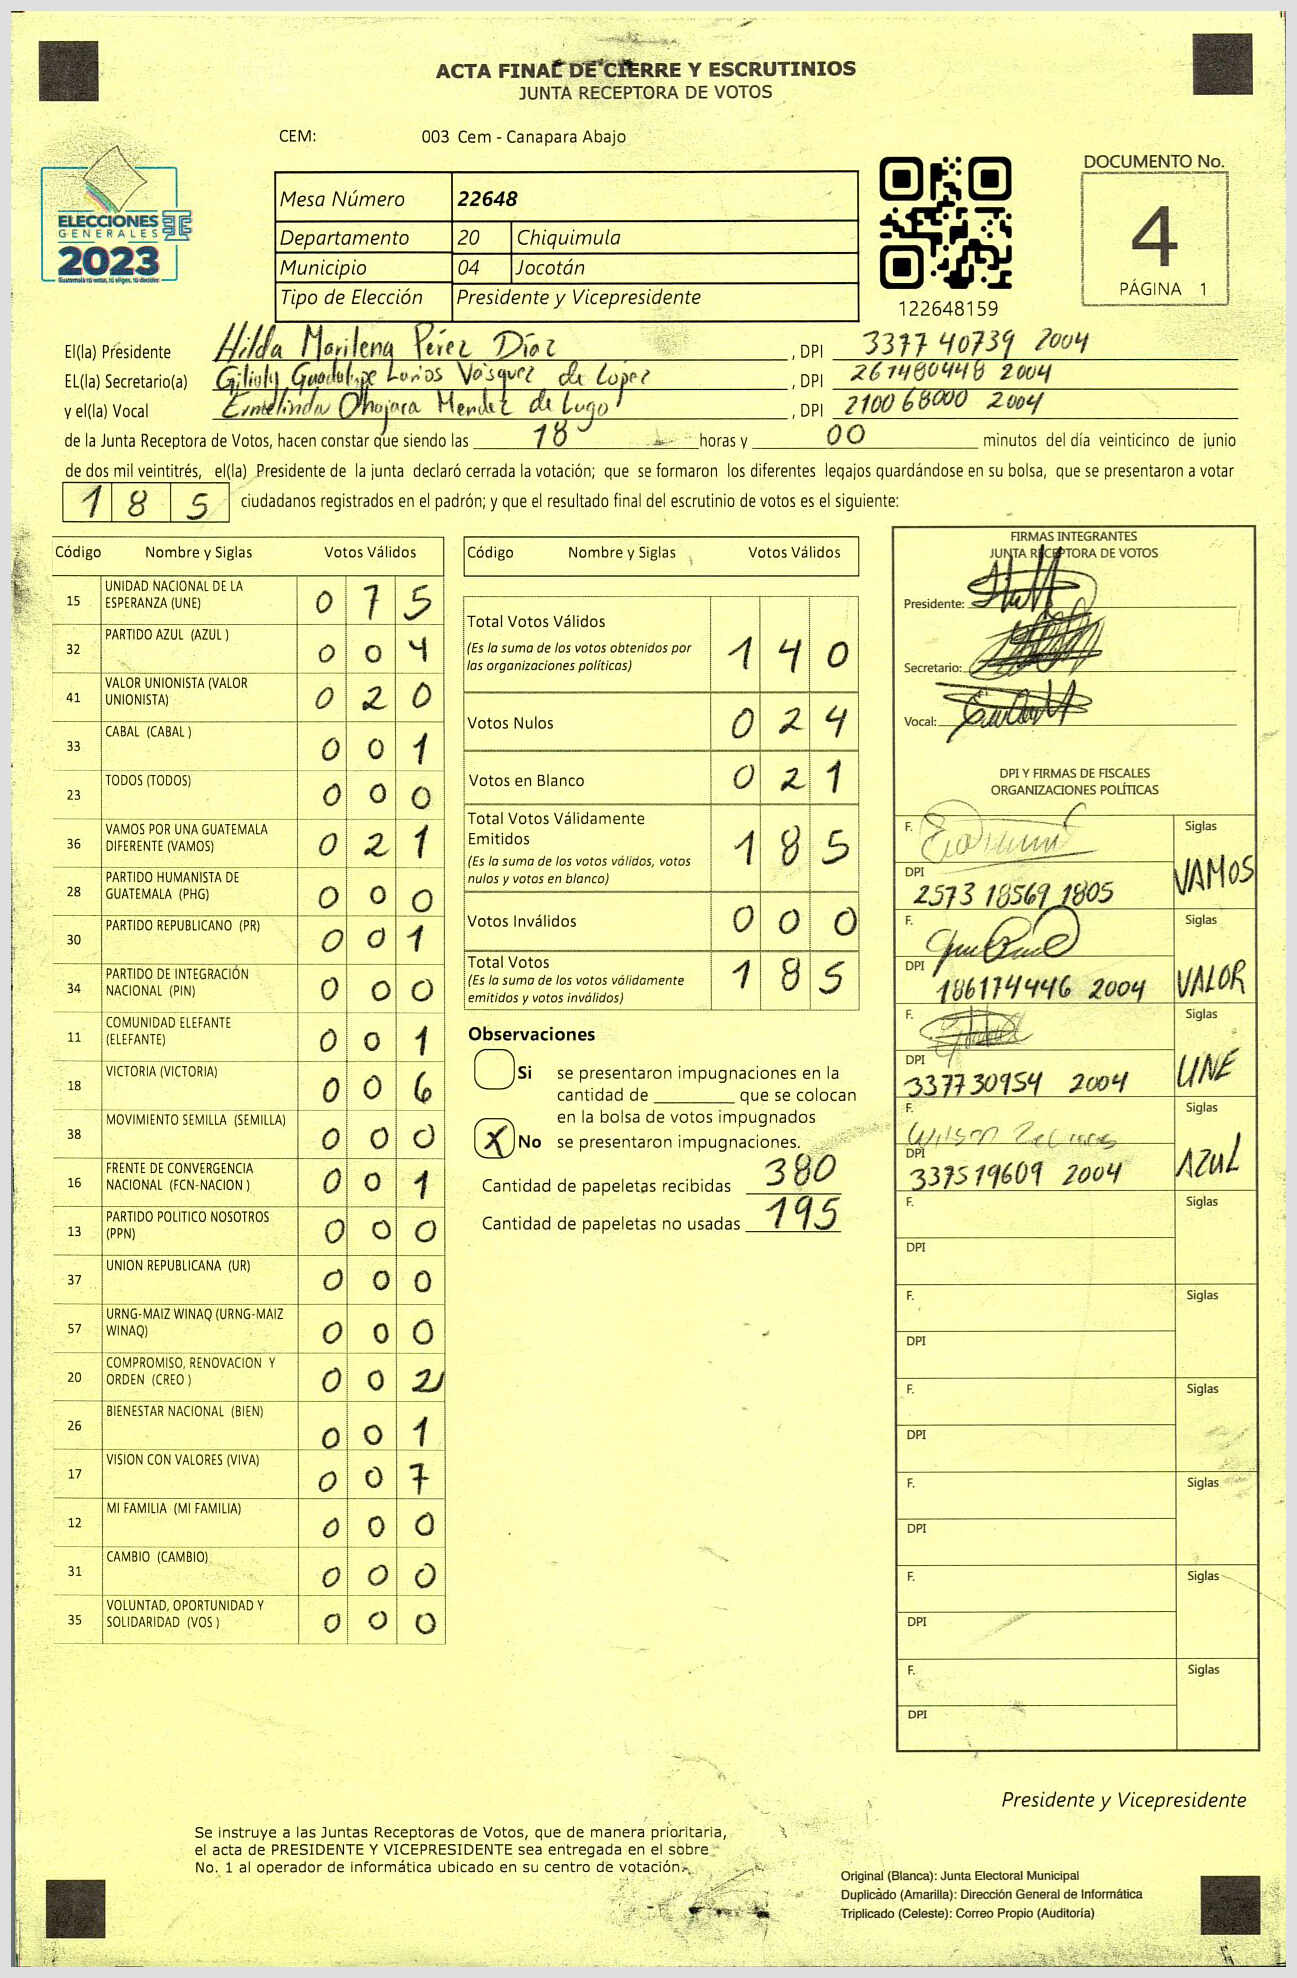 ACTA FINAL DE CIERRE Y ESCRUTINIOS
JUNTA RECEPTORA DE VOTOS
CEM: 003 Cem - Canapara Abajo
ELECCIONES
GENERALES
2023
Guatemala tú votas, tú eliges, tú decides
Mesa Número 22648
Departamento 20 Chiquimula
Municipio 04 Jocotán
Tipo de Elección Presidente y Vicepresidente
122648159
DOCUMENTO No.
4
PÁGINA 1
El(la) Presidente Hilda Marilena Pérez Díaz , DPI 3377 40739 2004
EL(la) Secretario(a) Guadalupe Vásquez de López , DPI 261480448 2004
y el(la) Vocal Ermelinda Mendez de Lugo , DPI 2100 68000 2004
de la Junta Receptora de Votos, hacen constar que siendo las 18 horas y 00 minutos del día veinticinco de junio
de dos mil veintitrés, el(la) Presidente de la junta declaró cerrada la votación; que se formaron los diferentes legajos guardándose en su bolsa, que se presentaron a votar
185 ciudadanos registrados en el padrón; y que el resultado final del escrutinio de votos es el siguiente:
Código Nombre y Siglas Votos Válidos
15 UNIDAD NACIONAL DE LA ESPERANZA (UNE) 0 7 5
32 PARTIDO AZUL (AZUL ) 0 0 4
41 VALOR UNIONISTA (VALOR UNIONISTA) 0 2 0
33 CABAL (CABAL ) 0 0 1
23 TODOS (TODOS) 0 0 0
36 VAMOS POR UNA GUATEMALA DIFERENTE (VAMOS) 0 2 1
28 PARTIDO HUMANISTA DE GUATEMALA (PHG) 0 0 0
30 PARTIDO REPUBLICANO (PR) 0 0 1
34 PARTIDO DE INTEGRACIÓN NACIONAL (PIN) 0 0 0
11 COMUNIDAD ELEFANTE (ELEFANTE) 0 0 1
18 VICTORIA (VICTORIA) 0 0 6
38 MOVIMIENTO SEMILLA (SEMILLA) 0 0 0
16 FRENTE DE CONVERGENCIA NACIONAL (FCN-NACION ) 0 0 1
13 PARTIDO POLITICO NOSOTROS (PPN) 0 0 0
37 UNION REPUBLICANA (UR) 0 0 0
57 URNG-MAIZ WINAQ (URNG-MAIZ WINAQ) 0 0 0
20 COMPROMISO, RENOVACION Y ORDEN (CREO ) 0 0 2
26 BIENESTAR NACIONAL (BIEN) 0 0 1
17 VISION CON VALORES (VIVA) 0 0 7
12 MI FAMILIA (MI FAMILIA) 0 0 0
31 CAMBIO (CAMBIO) 0 0 0
35 VOLUNTAD, OPORTUNIDAD Y SOLIDARIDAD (VOS ) 0 0 0
Código Nombre y Siglas Votos Válidos
Total Votos Válidos 1 4 0
(Es la suma de los votos obtenidos por
las organizaciones políticas)
Votos Nulos 0 2 4
Votos en Blanco 0 2 1
Total Votos Válidamente
Emitidos 1 8 5
(Es la suma de los votos válidos, votos
nulos y votos en blanco)
Votos Inválidos 0 0 0
Total Votos 1 8 5
(Es la suma de los votos válidamente
emitidos y votos inválidos)
Observaciones
Si se presentaron impugnaciones en la
cantidad de ________ que se colocan
en la bolsa de votos impugnados
X No se presentaron impugnaciones.
Cantidad de papeletas recibidas 380
Cantidad de papeletas no usadas 195
FIRMAS INTEGRANTES
JUNTA RECEPTORA DE VOTOS
Presidente:
Secretario:
Vocal:
DPI Y FIRMAS DE FISCALES
ORGANIZACIONES POLÍTICAS
F. Siglas
DPI VAMOS
2573 18569 1805
F. Siglas
DPI VALOR
186174446 2004
F. Siglas
DPI UNE
337730954 2004
F. Wilson Siglas
DPI AZUL
337519609 2004
F. Siglas
DPI
F. Siglas
DPI
F. Siglas
DPI
F. Siglas
DPI
F. Siglas
DPI
F. Siglas
DPI
Presidente y Vicepresidente
Se instruye a las Juntas Receptoras de Votos, que de manera prioritaria,
el acta de PRESIDENTE Y VICEPRESIDENTE sea entregada en el sobre
No. 1 al operador de informática ubicado en su centro de votación.
Original (Blanca): Junta Electoral Municipal
Duplicado (Amarilla): Dirección General de Informática
Triplicado (Celeste): Correo Propio (Auditoría)